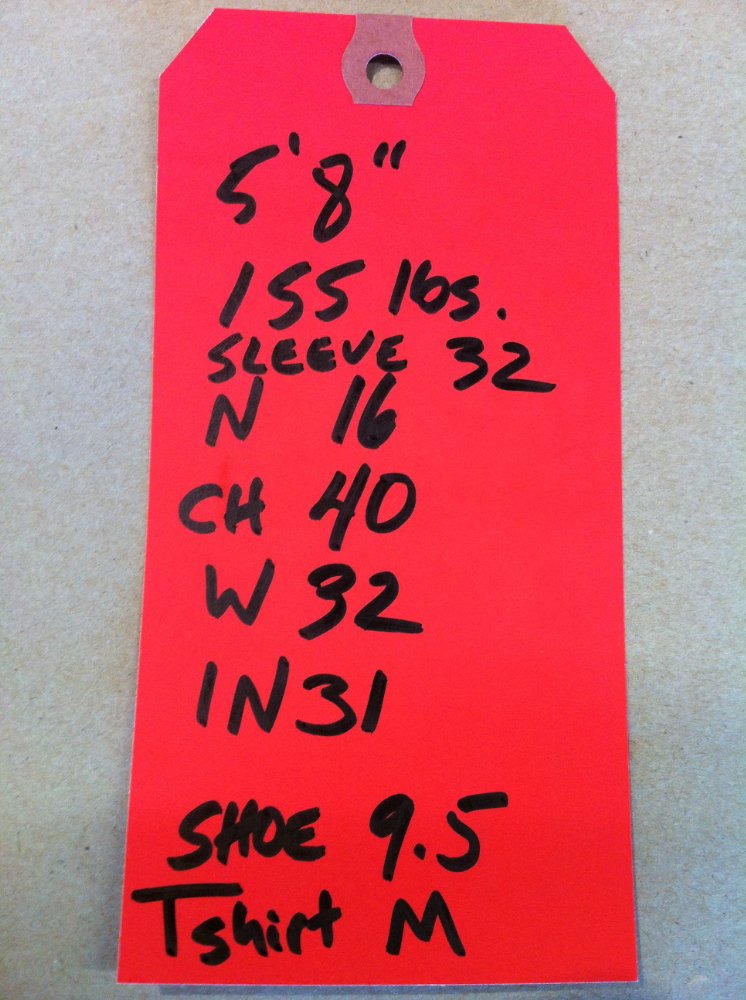 5'8"
155 lbs.
SLEEVE 32
N 16
CH 40
W 32
IN 31
SHOE 9.5
Tshirt M